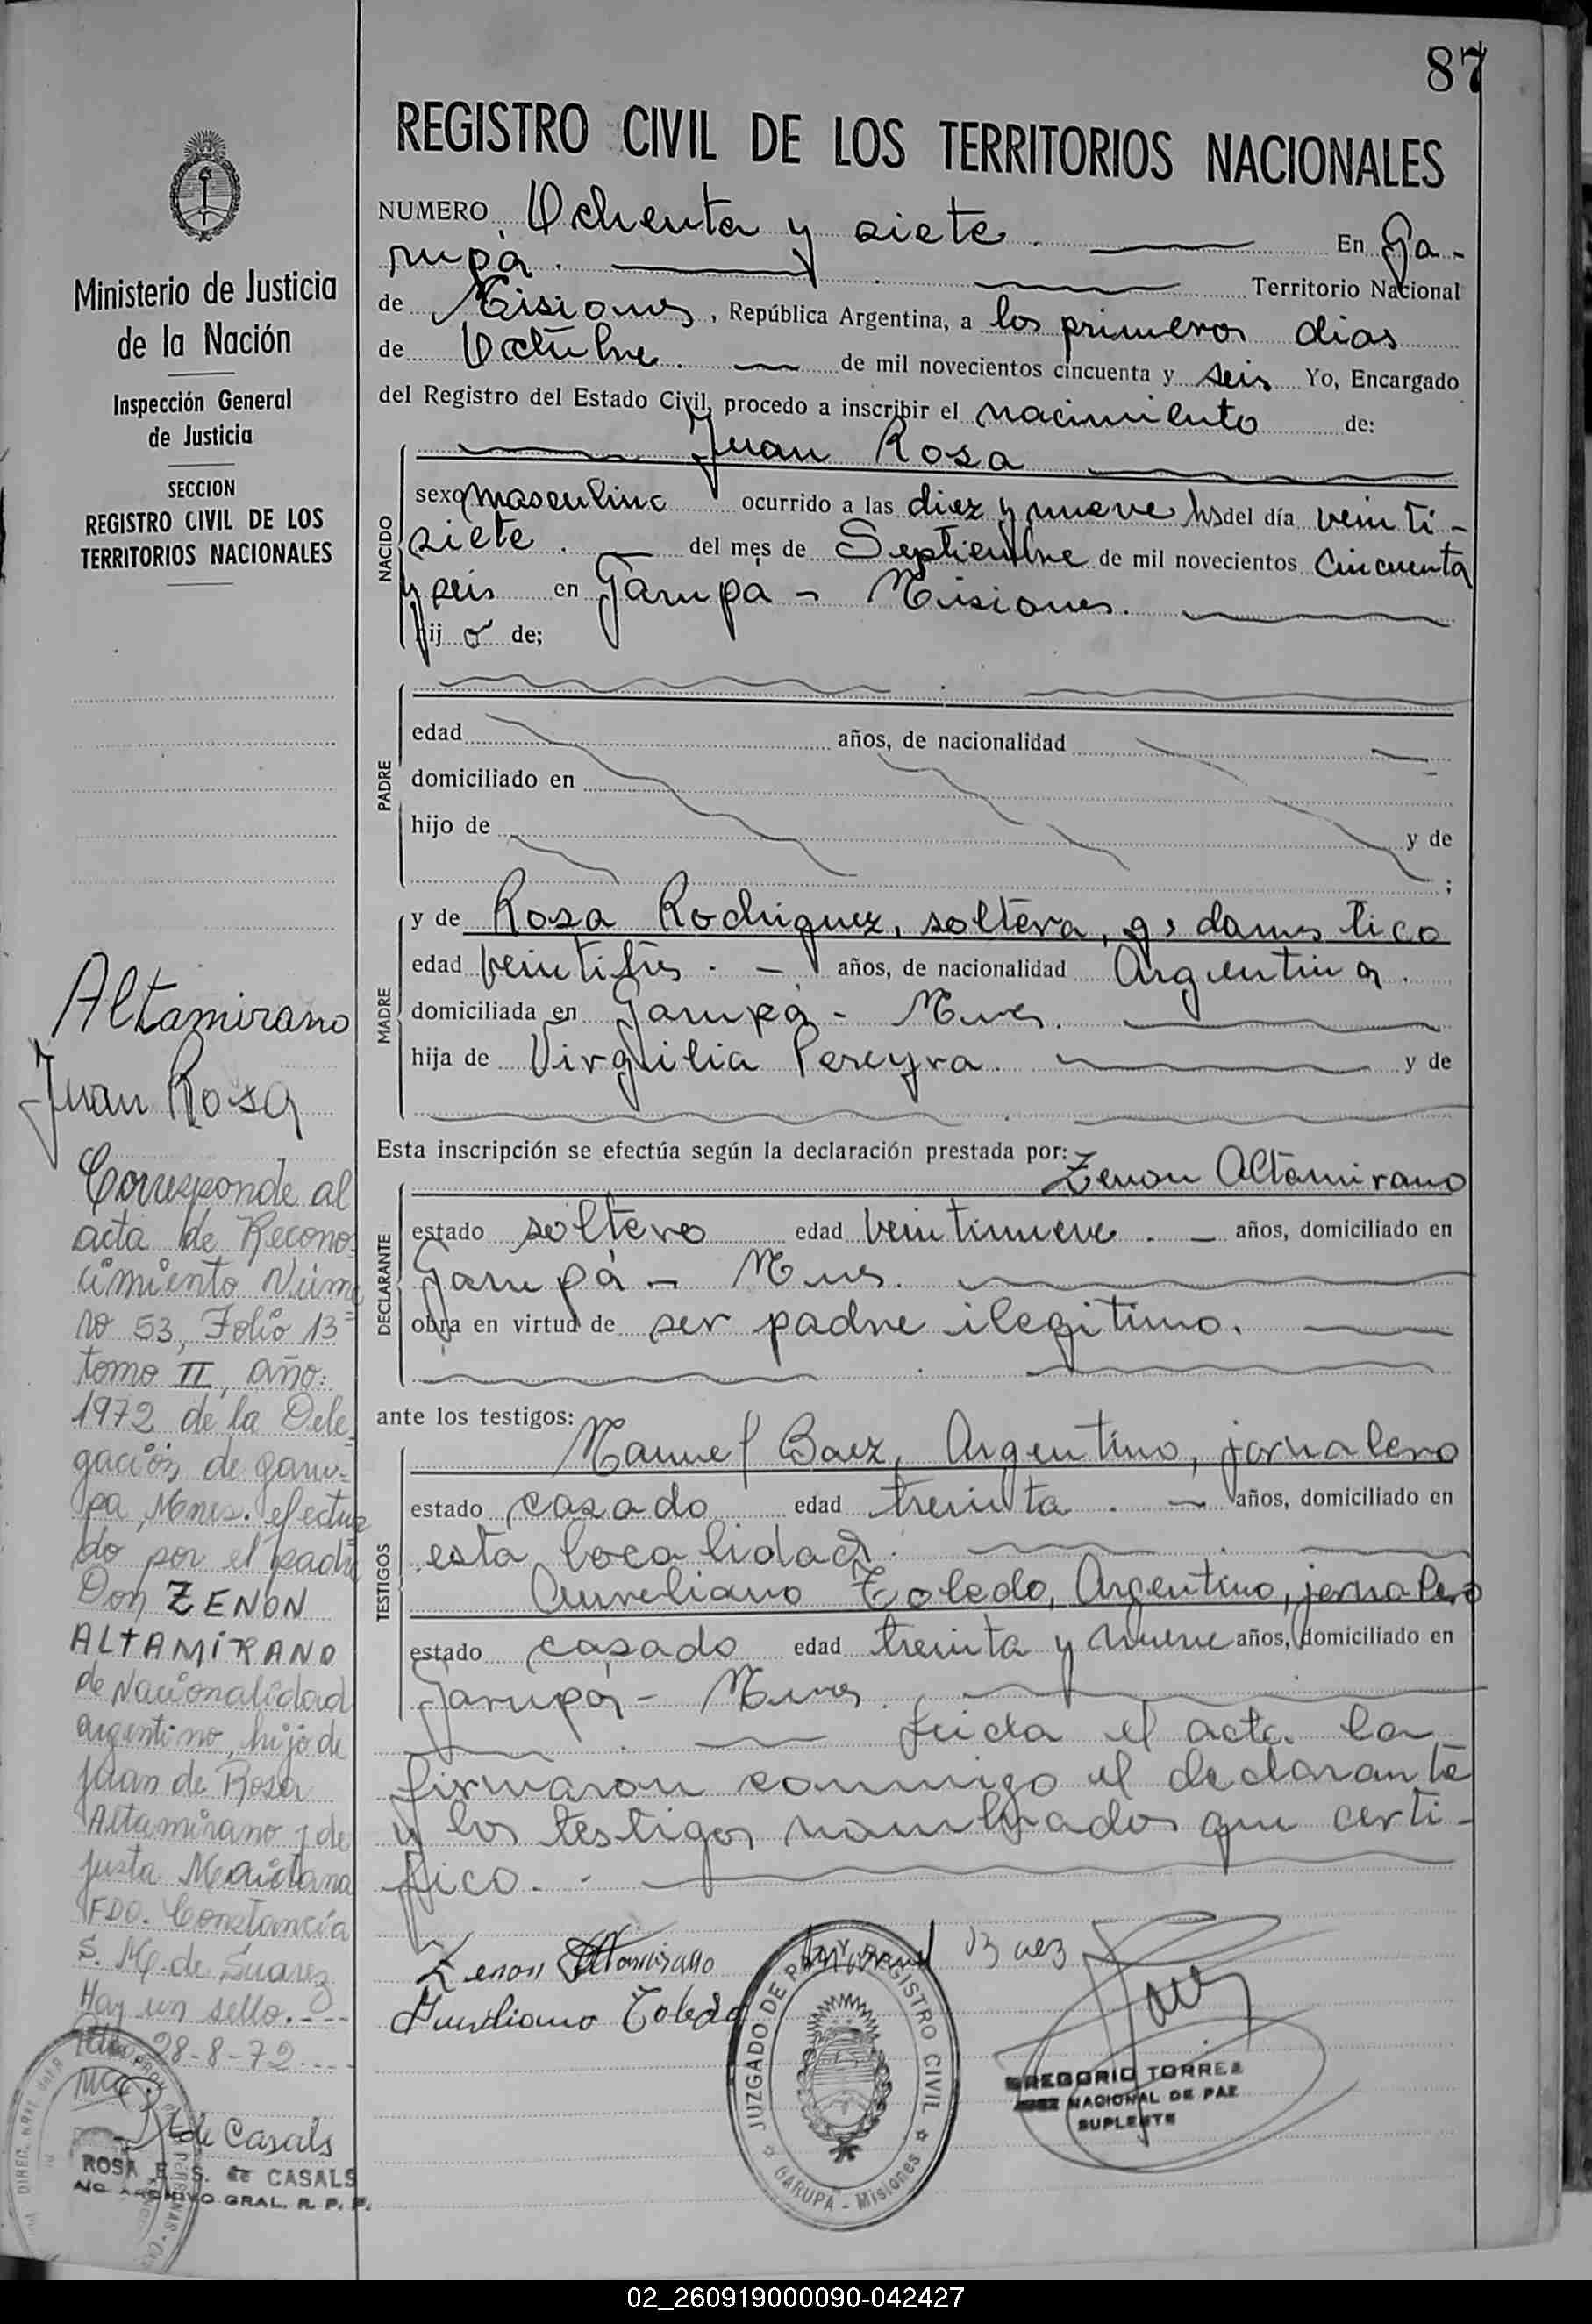 87
REGISTRO CIVIL DE LOS TERRITORIOS NACIONALES
Ministerio de Justicia
de la Nación
Inspección General
de Justicia
SECCION
REGISTRO CIVIL DE LOS
TERRITORIOS NACIONALES
Altamirano
Juan Rosa
Corresponde al
acta de Recono-
cimiento Núme
ro 53, Folio 13
tomo II, año:
1972 de la Dele
gación de garu-
pa, Mnes. efectua
do por el padre
Don ZENON
ALTAMIRANO
de Nacionalidad
argentino, hijo de
Juan de Rosa
Altamirano y de
Justa
FDO. Constancia
S. M. de Suarez
Hay un sello.----
28-8-72....
de Casals
ROSA E. S. de CASALS
A/C ARCHIVO GRAL. R. P. P.
NUMERO Ochenta y siete. En Ga-
rupá. Territorio Nacional
de Misiones, República Argentina, a los primeros dias
de Octubre. de mil novecientos cincuenta y seis Yo, Encargado
del Registro del Estado Civil, procedo a inscribir el nacimiento de:
Juan Rosa
NACIDO
sexo masculino ocurrido a las diez y nueve hs del día veinti-
siete. del mes de Septiembre de mil novecientos cincuenta
y seis en Garupá - Misiones.
hijo de;
PADRE
edad años, de nacionalidad
domiciliado en
hijo de y de
;
MADRE
y de Rosa Rodriguez, soltera, q. domestico
edad veintitres. - años, de nacionalidad Argentina.
domiciliada en Garupá - Mnes.
hija de Virgilia Pereyra. y de
Esta inscripción se efectúa según la declaración prestada por:
Zenon Altamirano
DECLARANTE
estado soltero edad veintinueve. - años, domiciliado en
Garupá - Mnes.
obra en virtud de ser padre ilegitimo.
ante los testigos:
TESTIGOS
Manuel Baez, Argentino, jornalero
estado casado edad treinta. - años, domiciliado en
esta localidad.
Aureliano Toledo, Argentino, jornalero
estado casado edad treinta y nueve años, domiciliado en
Garupá - Mnes.
Leida el acta la
firmaron conmigo el declarante
y los testigos nombrados que certi-
fico.-
Zenon Altamirano Manuel Baez
Aureliano Toledo
JUZGADO DE PAZ Y REGISTRO CIVIL
GARUPÁ - Misiones
GREGORIO TORRES
JUEZ NACIONAL DE PAZ
SUPLENTE
02_260919000090-042427